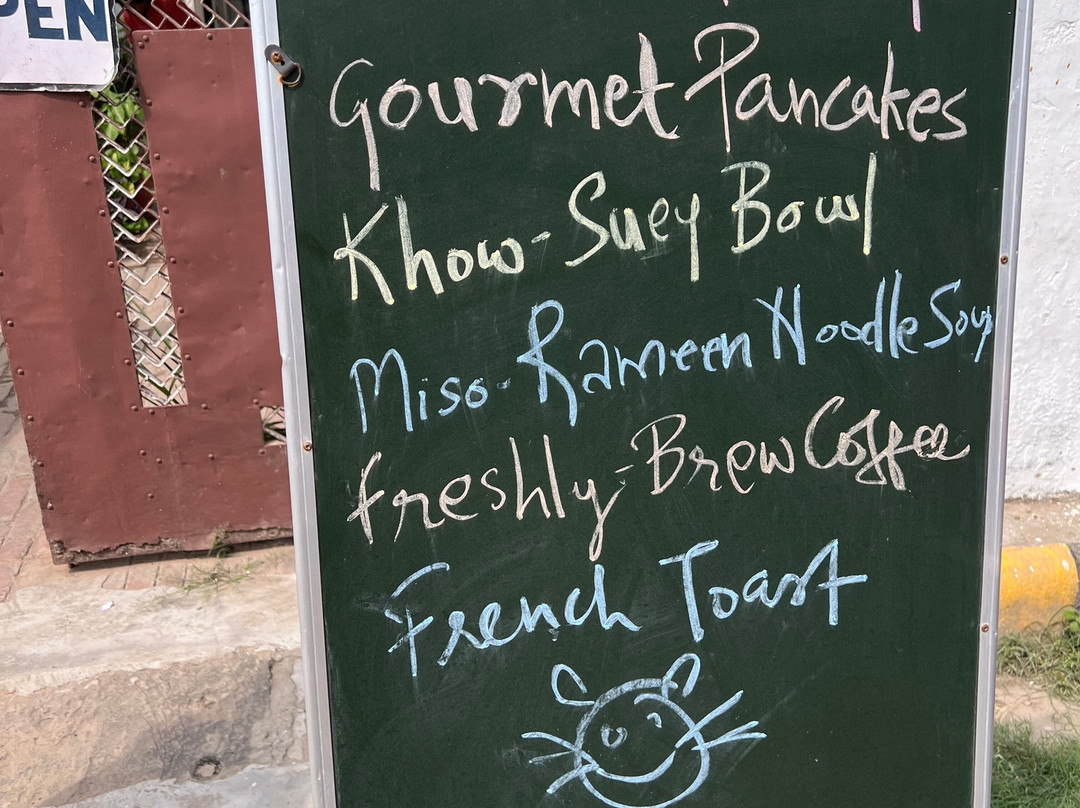 PEN
Gourmet Pancakes
Khow-Suey Bowl
Miso-Rameen Noodle Soup
Freshly-Brew Coffee
French Toast